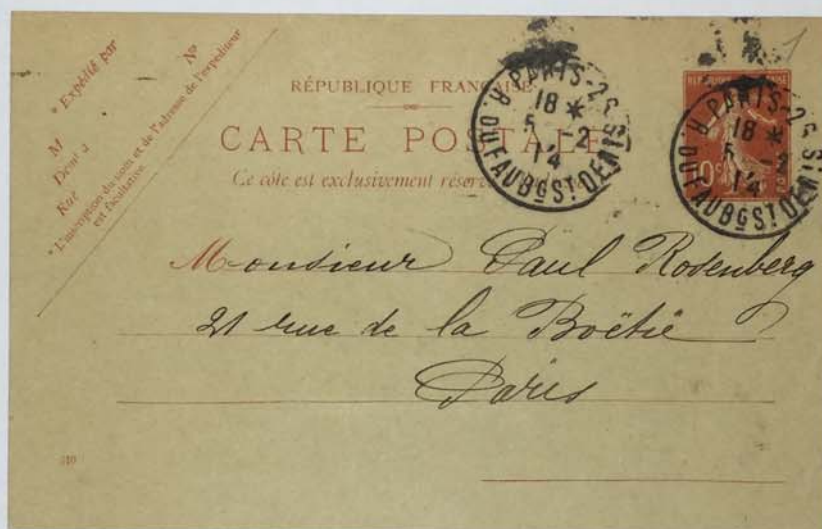 * Expédié par
M
Demt à
Rue
N°
* L'inscription du nom et de l'adresse de l'expéditeur
est facultative.
RÉPUBLIQUE FRANÇAISE
CARTE POSTALE
Ce côté est exclusivement réservé
PARIS-25
18 *
5 -2
14
R. DU FAUBG ST DENIS
PARIS-25
18 *
5 -2
14
R. DU FAUBG ST DENIS
1
Monsieur Paul Rosenberg
21 rue de la Boëtie
Paris
310